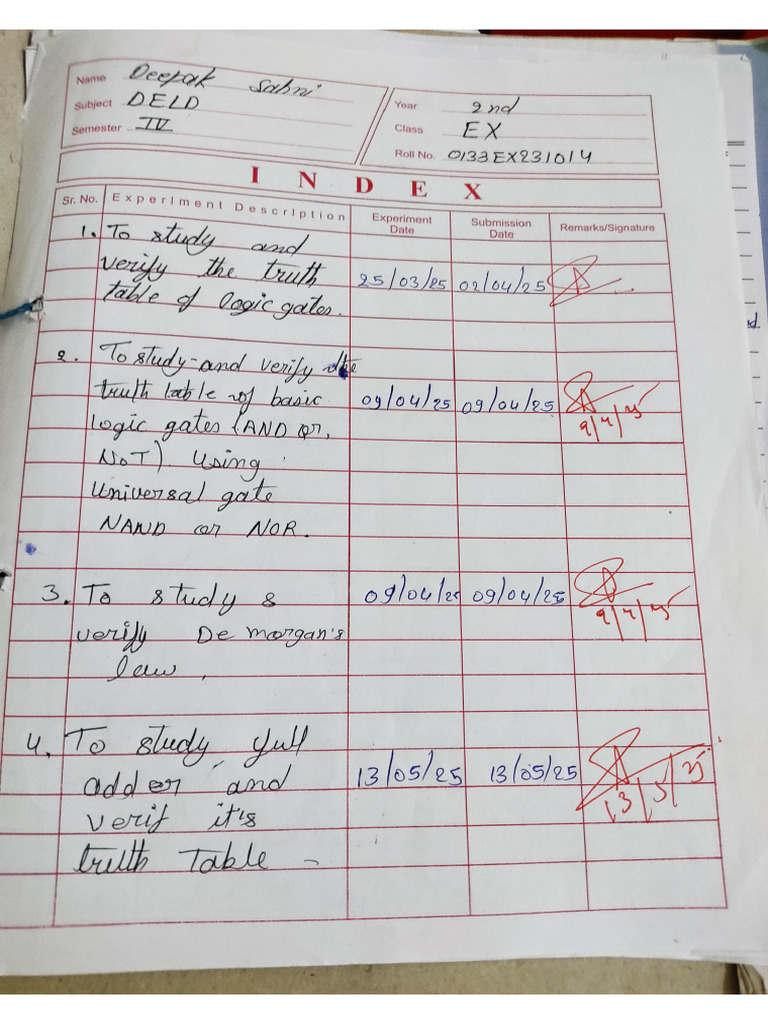 Name Deepak Sahni
Subject DELD
Semester IV
Year 2nd
Class EX
Roll No. 0133EX231014
INDEX
Sr. No. Experiment Description Experiment Date Submission Date Remarks/Signature
1. To study and
verify the truth 25/03/25 02/04/25
table of logic gates.
2. To study and verify the
truth table of basic 09/04/25 09/04/25
logic gates (AND or, 9/4/25
NOT) Using
Universal gate
NAND or NOR.
3. To study & 09/04/25 09/04/25
verify De morgan's 9/4/25
law.
4. To study full
adder and 13/05/25 13/05/25
verif it's 13/5/25
truth Table -